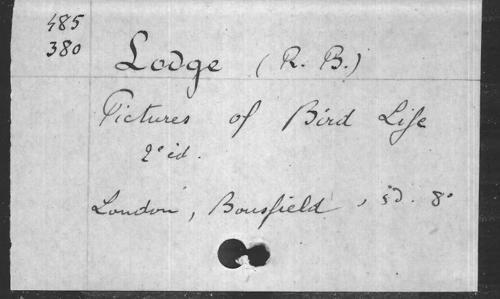 485
380
Lodge (R. B.)
Pictures of Bird Life
2e éd.
London, Bousfield, sd. 8o